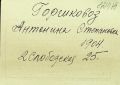 Горшковоз
Антенина Степановна
1904
2 Слободская 25